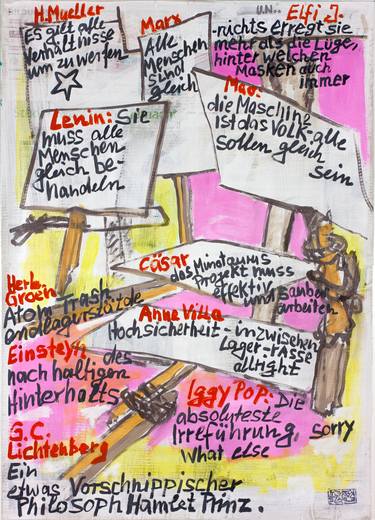 H. Mueller
ES gilt alle
Verhältnisse
um zu werfen
Marx
Alle
Menschen
sind
gleich
U.N..
Elfi J.
-nichts erregt sie
mehr als die Lüge,
hinter welchen
Masken auch
immer
Mao:
die Maschine
ist das VOLK-alle
sollen gleich
sein
Lenin: Sie
muss alle
Menschen
gleich be-
handeln
Cäsar
das Minotaurus
Projekt muss
effektiv
und sauber
arbeiten
Herb.
Groen
Atom Trash
endlagerstätte
Anne Villa
Hochsicherheit - inzwischen
Lager-rasse
allright
Einsteyn des
nach haltigen
Hinterhalts
Iggy Pop: Die
absoluteste
Irreführung, sorry
what else
G.C.
Lichtenberg
Ein
etwas Vorschnippischer
Philosoph Hamlet Prinz.